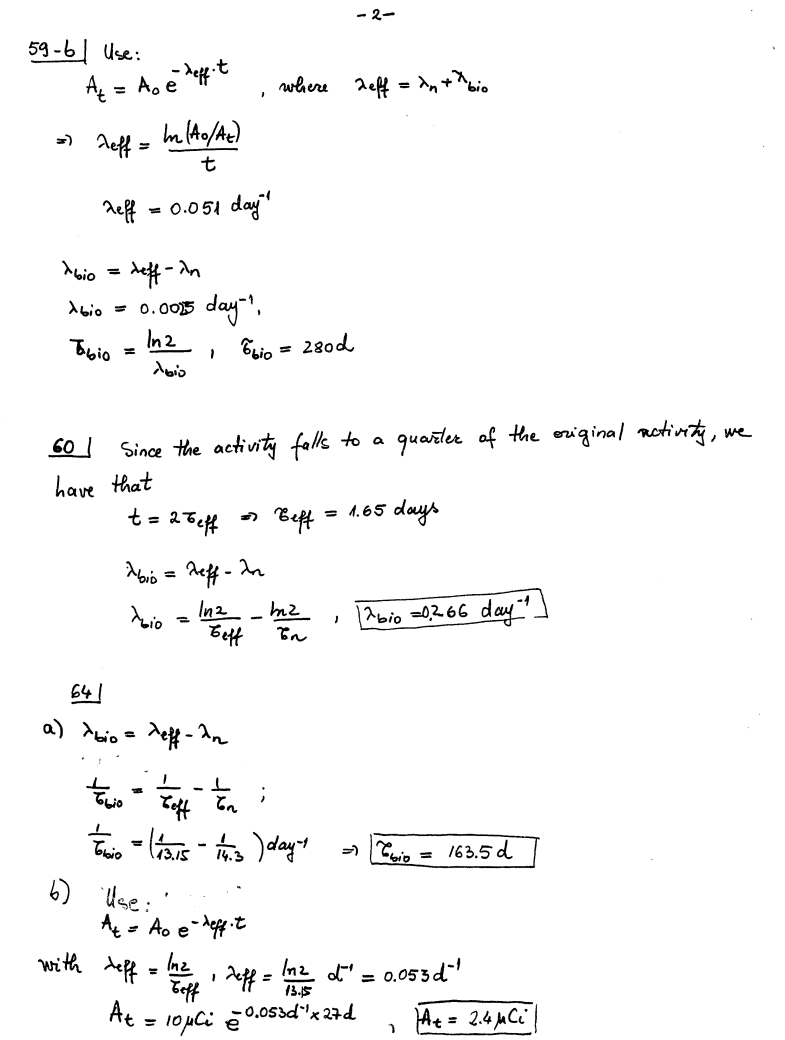 -2-
59-b| Use:
A_t = A_0 e^{-λeff·t} , where λeff = λn + λbio
=> λeff = ln(A_0/A_t) / t
λeff = 0.051 day⁻¹
λbio = λeff - λn
λbio = 0.0025 day⁻¹,
τbio = ln2 / λbio , τbio = 280d
60| Since the activity falls to a quarter of the original activity, we
have that
t = 2τeff => τeff = 1.65 days
λbio = λeff - λn
λbio = ln2/τeff - ln2/τn , λbio = 0.266 day⁻¹
64|
a) λbio = λeff - λn
1/τbio = 1/τeff - 1/τn ;
1/τbio = (1/13.15 - 1/14.3) day⁻¹ => τbio = 163.5 d
b) Use:
A_t = A_0 e^{-λeff·t}
with λeff = ln2/τeff , λeff = ln2/13.15 d⁻¹ = 0.053 d⁻¹
A_t = 10 μCi e^{-0.053d⁻¹ x 27d} , A_t = 2.4 μCi